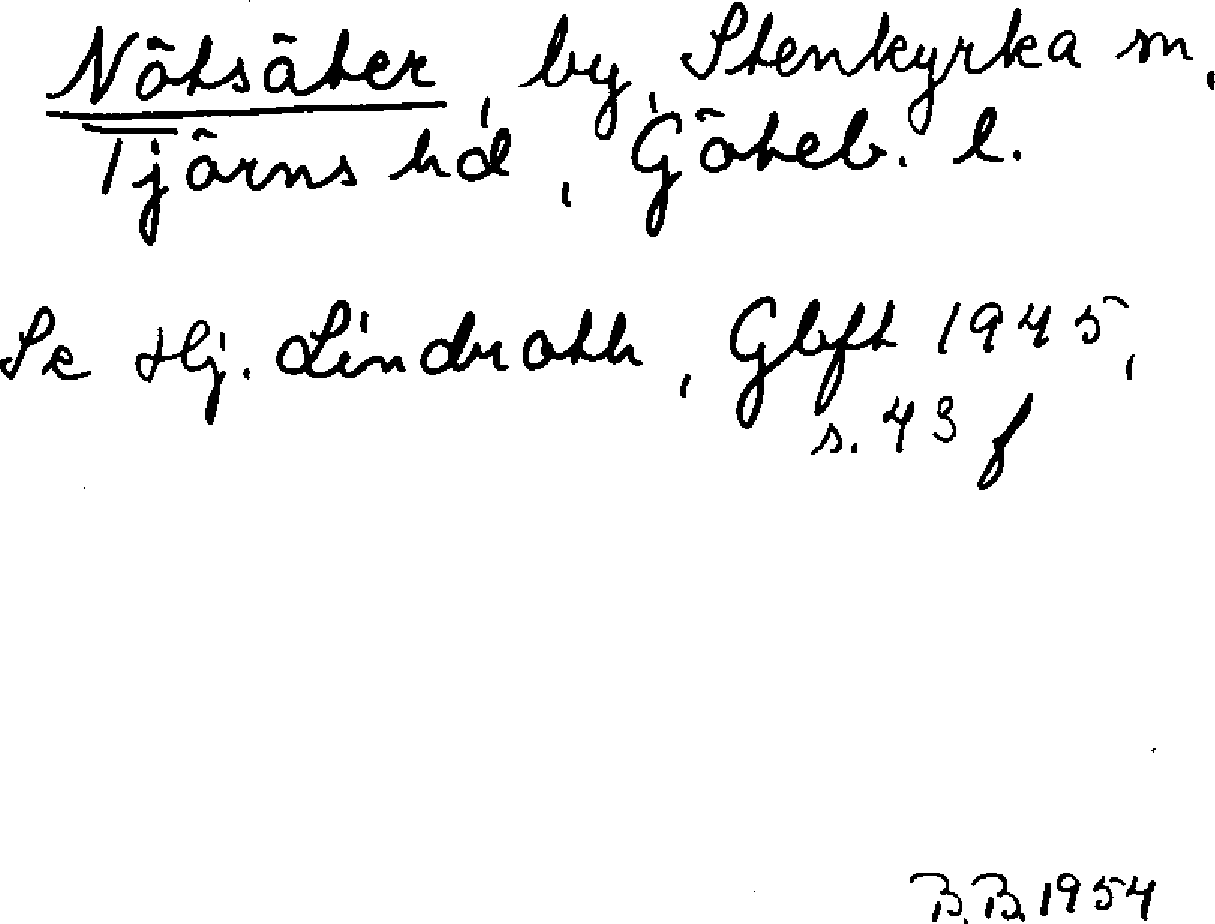 Nötsäter, by, Stenkyrka sn,
Tjörns hd, Göteb. l.
Se Hj. Lindroth, Gbft 1945,
s. 43 f
B.B. 1954